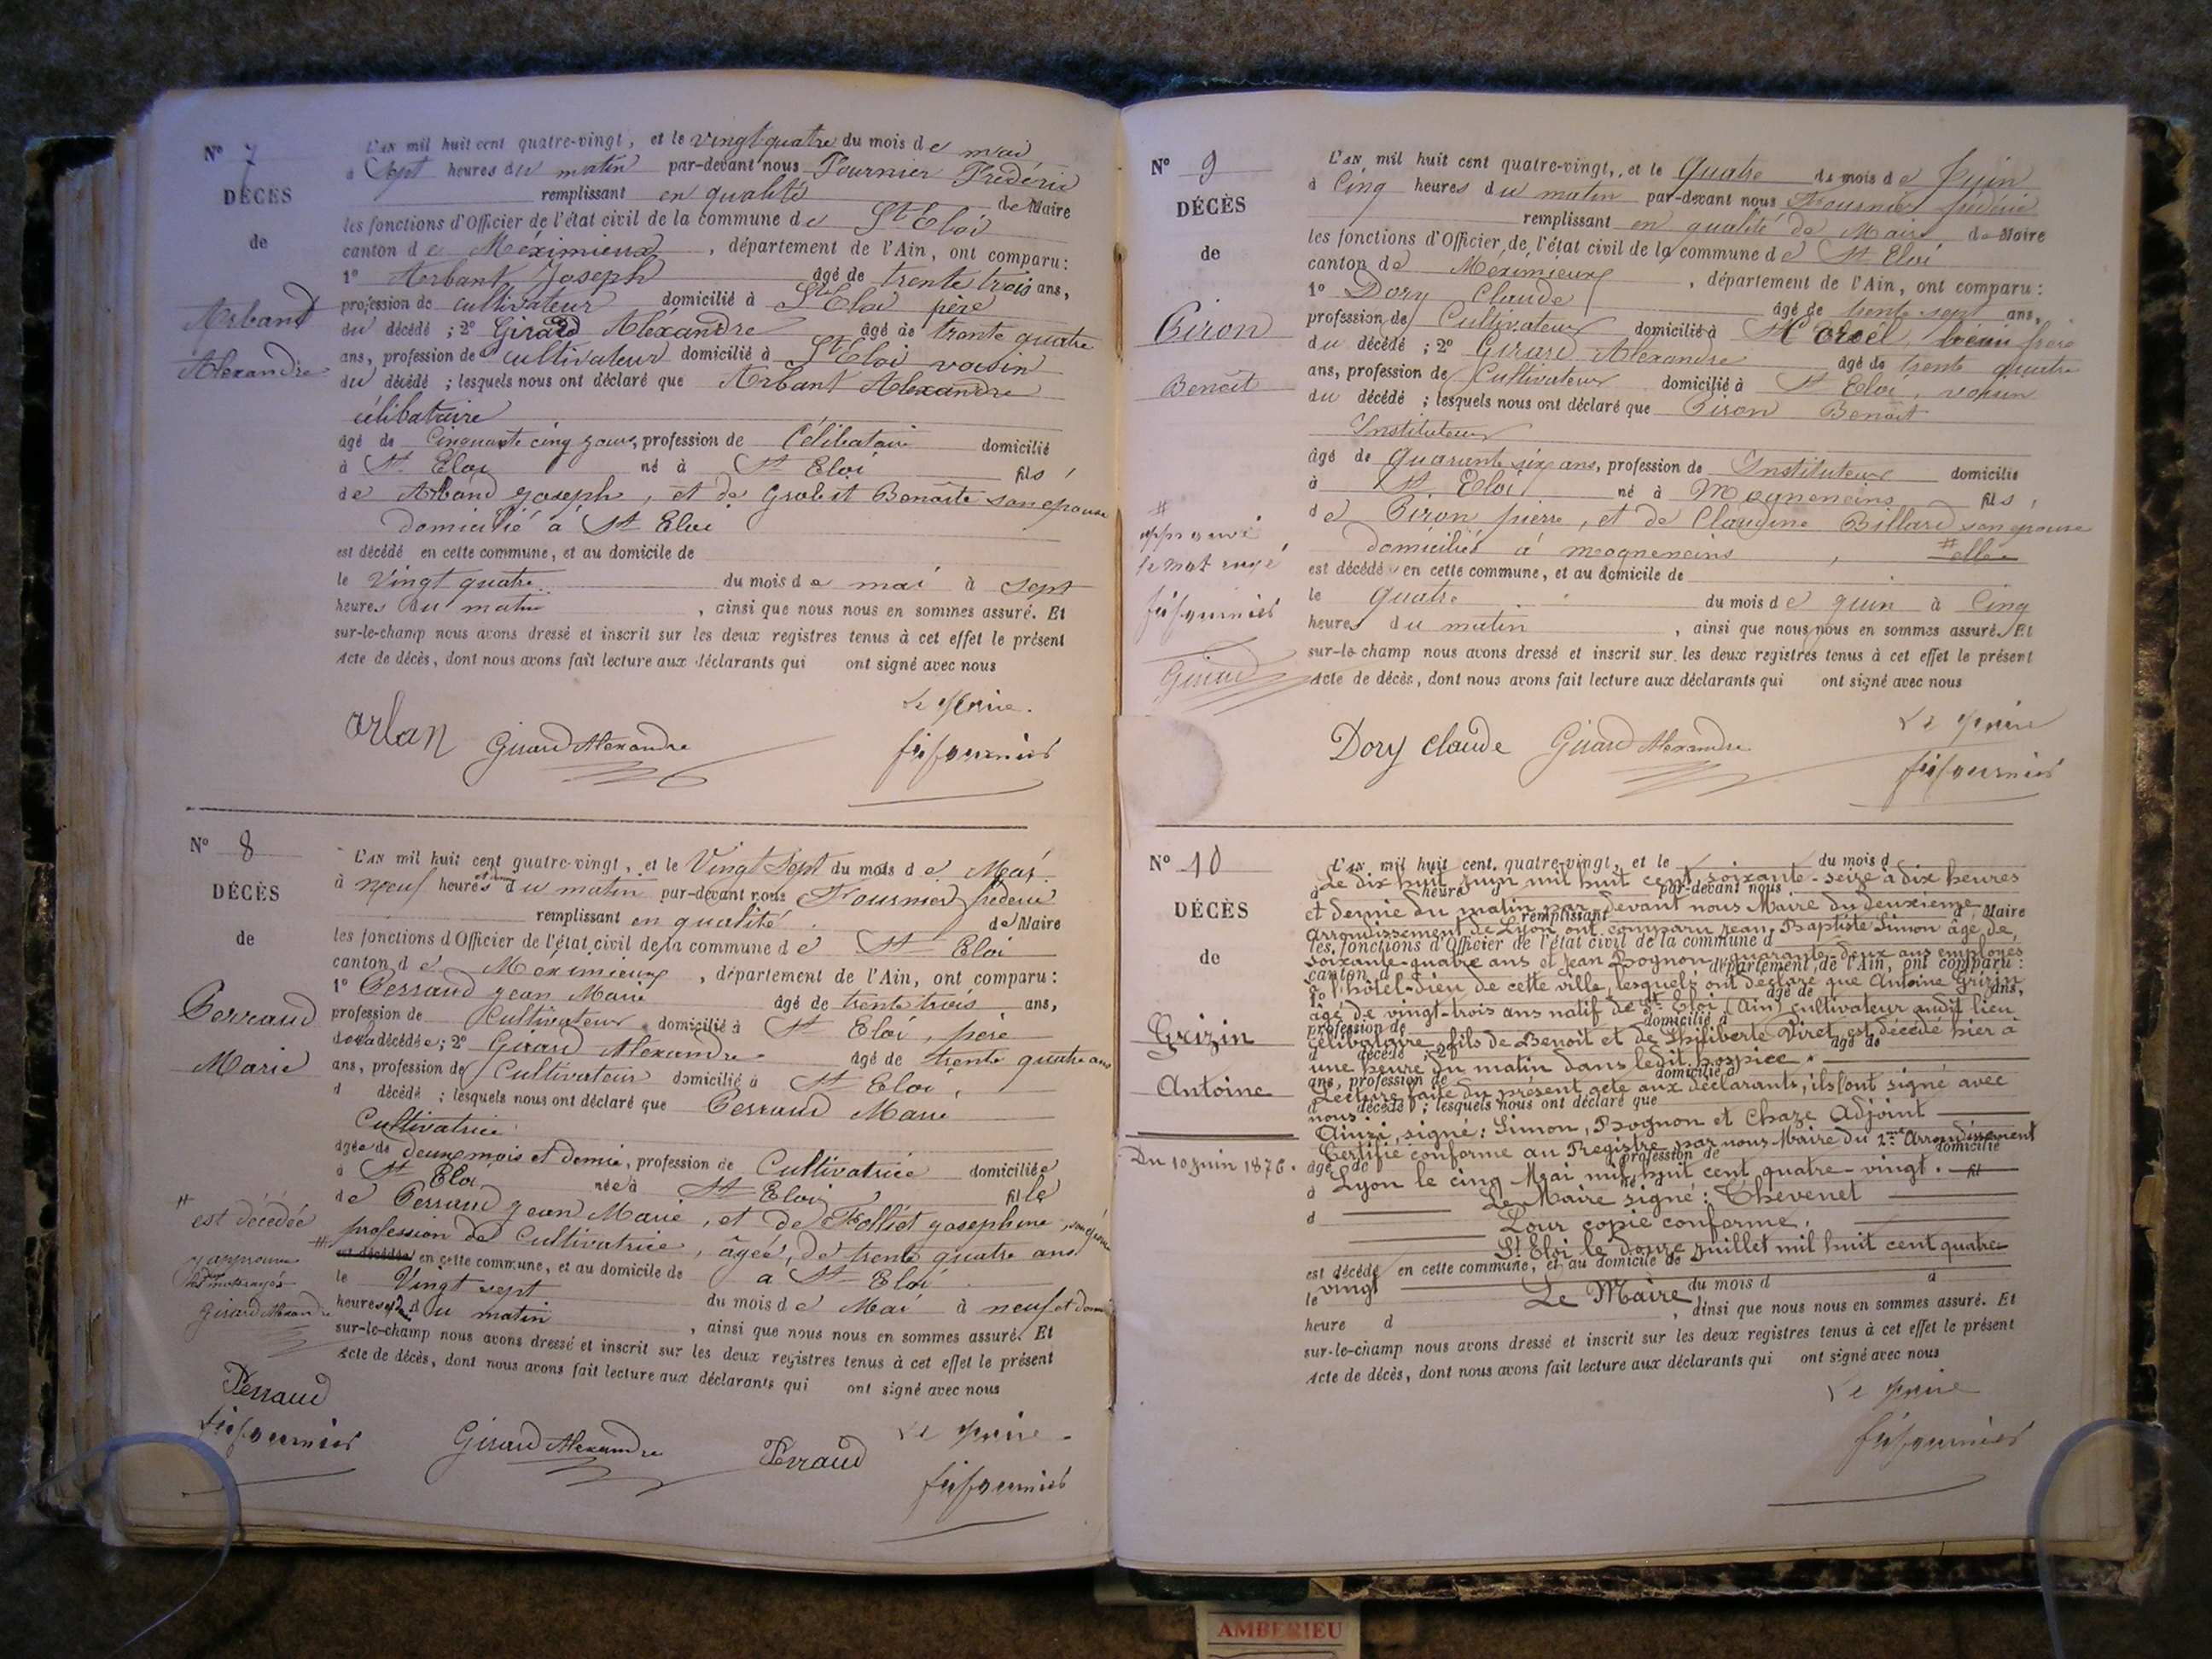 N° 7
DÉCÈS
de
Arband
Alexandre
L'AN mil huit cent quatre-vingt, et le vingt quatre du mois de mai
à Sept heures du matin par-devant nous Fournier Frédéric
remplissant en qualité de Maire
les fonctions d'Officier de l'état civil de la commune de St Eloi
canton de Méximieux, département de l'Ain, ont comparu:
1° Arbant Joseph âgé de trente trois ans,
profession de cultivateur domicilié à St Eloi père
du décédé ; 2° Girard Aléxandre âgé de trente quatre
ans, profession de cultivateur domicilié à St Eloi voisin
du décédé ; lesquels nous ont déclaré que Arbant Alexandre
célibataire
âgé de Cinquante cinq jours, profession de Célibataire domicilié
à St Eloi né à St Eloi fils
de Arband Joseph, et de Benoîte son épouse
domicilié à St Eloi
est décédé en cette commune, et au domicile de
le Vingt quatre du mois de mai à sept
heures du matin, ainsi que nous nous en sommes assuré. Et
sur-le-champ nous avons dressé et inscrit sur les deux registres tenus à cet effet le présent
Acte de décès, dont nous avons fait lecture aux déclarants qui ont signé avec nous
Le Maire
arban Girard Alexandre
N° 8
DÉCÈS
de
Perraud
Marie
L'AN mil huit cent quatre-vingt, et le Vingt Sept du mois de Mai
à neuf heures et demie du matin par-devant nous Fournier frederic
remplissant en qualité de Maire
les fonctions d'Officier de l'état civil de la commune de St Eloi
canton de Méximieux, département de l'Ain, ont comparu:
1° Perraud jean Marie âgé de trente trois ans,
profession de Cultivateur domicilié à St Eloi, père
de la décédée; 2° Girard Alexandre âgé de trente quatre ans
ans, profession de Cultivateur domicilié à St Eloi,
d décédé ; lesquels nous ont déclaré que Perraud Marie
Cultivatrice
âgée de deux mois et demie, profession de Cultivatrice domiciliée
à St Eloi née à St Eloi fille
de Perraud jean Marie, et de josephine, son épouse
# est décédée
profession de Cultivatrice, âgée, de trente quatre ans
# est décédée en cette commune, et au domicile de à St Eloi
Girard Alexandre
le Vingt sept du mois de Mai à neuf et demie
heures du matin, ainsi que nous nous en sommes assuré. Et
sur-le-champ nous avons dressé et inscrit sur les deux registres tenus à cet effet le présent
Acte de décès, dont nous avons fait lecture aux déclarants qui ont signé avec nous
Perraud
Le Maire
Girard Alexandre Perraud
N° 9
DÉCÈS
de
Piron
Benoit
L'AN mil huit cent quatre-vingt, et le Quatre du mois de Juin
à Cinq heures du matin par-devant nous Fournier frédéric
remplissant en qualité de Maire de Maire
les fonctions d'Officier de l'état civil de la commune de St Eloi
canton de Méximieux, département de l'Ain, ont comparu:
1° Dory Claude âgé de trente sept ans,
profession de Cultivateur domicilié à frère
du décédé ; 2° Girard Alexandre âgé de trente quatre
ans, profession de Cultivateur domicilié à St Eloi, voisin
du décédé ; lesquels nous ont déclaré que Piron Benoit
Instituteur
âgé de Quarante six ans, profession de Instituteur domicilié
à St Eloi né à Mogneneins fils
de Piron pierre, et de Claudine Billard son épouse
domiciliés à mogneneins, # elle
#
approuvé
le mot rayé
Girard
est décédé en cette commune, et au domicile de
le Quatre du mois de juin à Cinq
heures du matin, ainsi que nous nous en sommes assuré. Et
sur-le-champ nous avons dressé et inscrit sur les deux registres tenus à cet effet le présent
Acte de décès, dont nous avons fait lecture aux déclarants qui ont signé avec nous
Le Maire
Dory Claude Girard Alexandre
N° 10
DÉCÈS
de
Grizin
Antoine
Du 10 Juin 1876.
L'AN mil huit cent quatre-vingt, et le du mois d
Le dix huit juin mil huit cent soixante-seize à dix heures
à heure par-devant nous
et demie du matin par devant nous Maire du deuxième
remplissant d Maire
arrondissement de Lyon ont comparu Jean Baptiste Simon âgé de
les fonctions d'Officier de l'état civil de la commune d
soixante-quatre ans et Jean Bognon quarante-deux ans employés
canton d département de l'Ain, ont comparu:
à l'hôtel-Dieu de cette ville, lesquels ont déclaré que Antoine Grizin
1° âgé de ans,
âgé de vingt-trois ans natif de St Eloi (Ain) cultivateur audit lieu
profession de domicilié à
célibataire, fils de Benoit et de Philiberte Viret, est décédé hier à
d décédé ; 2° âgé de
une heure du matin dans ledit hospice.
ans, profession de domicilié à
Lecture faite du présent acte aux déclarants, ils l'ont signé avec
d décédé ; lesquels nous ont déclaré que
nous.
Ainsi signé: Simon, Bognon et Chaze Adjoint
Certifié conforme au Registre par nous Maire du 2me Arrondissement
âgé de profession de domicilié
Lyon le cinq Mai mil huit cent quatre-vingt.
à né fil
Le Maire signé: Thevenet
d
Pour copie conforme,
St Eloi le douze juillet mil huit cent quatre
est décédé en cette commune, et au domicile de
vingt
le du mois d à
Le Maire
heure d, ainsi que nous nous en sommes assuré. Et
sur-le-champ nous avons dressé et inscrit sur les deux registres tenus à cet effet le présent
Acte de décès, dont nous avons fait lecture aux déclarants qui ont signé avec nous
Le Maire
AMBERIEU